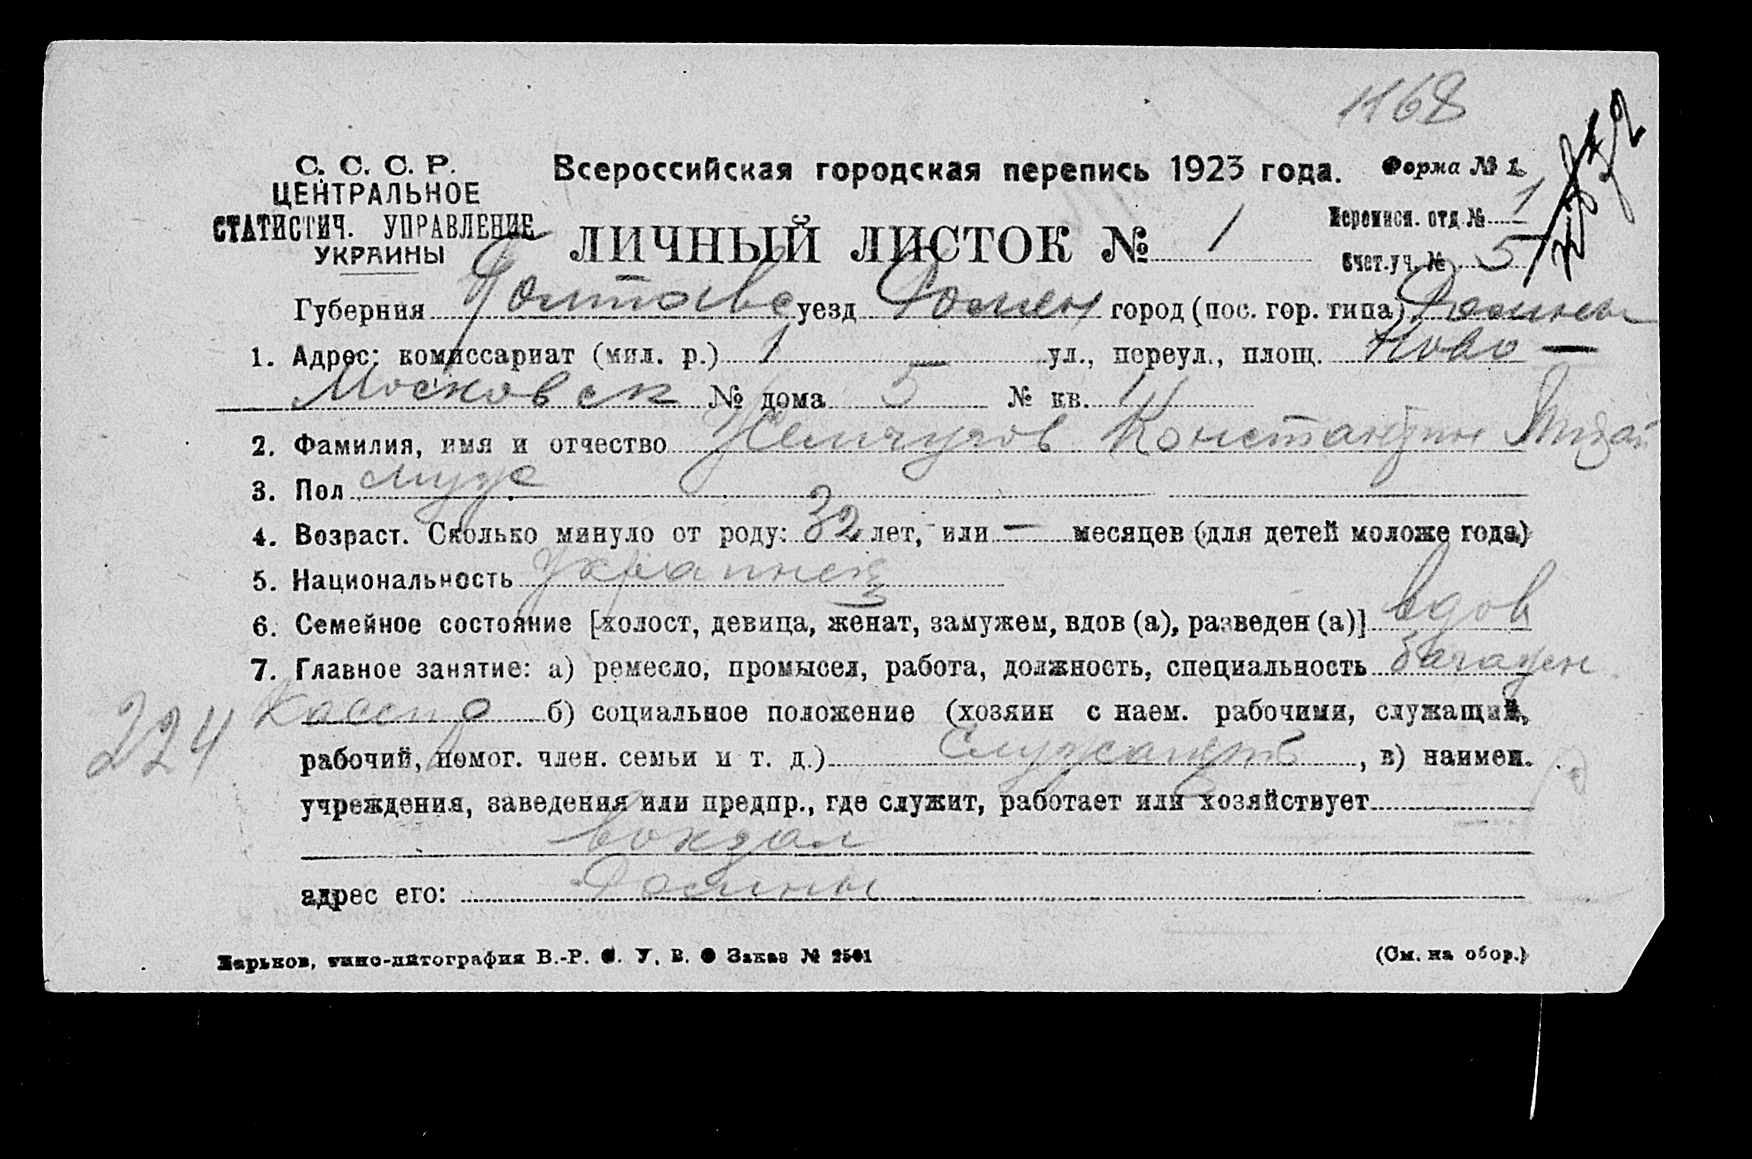 1168
С. С. С. Р.
ЦЕНТРАЛЬНОЕ
СТАТИСТИЧ. УПРАВЛЕНИЕ
УКРАИНЫ
Всероссийская городская перепись 1923 года.
Форма № 1.
ЛИЧНЫЙ ЛИСТОК № 1
Переписн. отд № 1
Счет. уч. № 5
Губерния Полтавс уезд Ромен город (пос. гор. типа) Ромны
1. Адрес: комиссариат (мил. р.) 1 ул., переул., площ. Ново —
Московск № дома 5 № кв. 1
2. Фамилия, имя и отчество Жемчугов Константин Михай
3. Пол муж
4. Возраст. Сколько минуло от роду: 32 лет, или — месяцев (для детей моложе года)
5. Национальность Украинец
6. Семейное состояние [холост, девица, женат, замужем, вдов (а), разведен (а)] вдов
7. Главное занятие: а) ремесло, промысел, работа, должность, специальность багажн
224 Кассир б) социальное положение (хозяин с наем. рабочими, служащий,
рабочий, помог. член. семьи и т. д.) Служащий, в) наимен.
учреждения, заведения или предпр., где служит, работает или хозяйствует
вокзал
адрес его: Ромны
Харьков, типо-литография В.-Р. С. У. В. О Заказ № 2501
(См. на обор.)